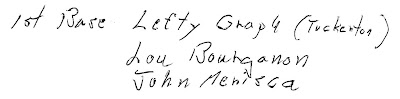 1st Base Lefty Graph (Tuckerton)
Lou Bourganon
John Menisca